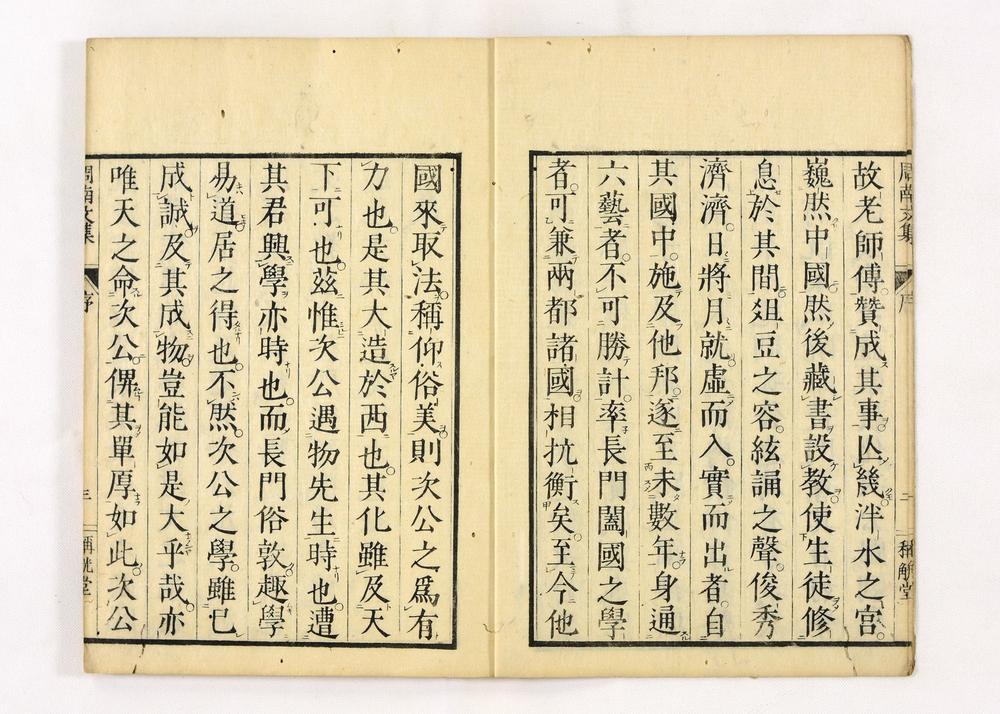 周南文集
序
二
稱觥堂
故老師傅贊成其事亾幾泮水之宮
巍然中國然後藏書設教使生徒修
息於其間俎豆之容絃誦之聲俊秀
濟濟日將月就虛而入實而出者自
其國中施及他邦遂至未數年身通
六藝者不可勝計率長門闔國之學
者可兼兩都諸國相抗衡矣至今他
國來取法稱仰俗美則次公之爲有
力也是其大造於西也其化雖及天
下可也茲惟次公遇物先生時也遭
其君興學亦時也而長門俗敦趣學
易道居之得也不然次公之學雖已
成誠及其成物豈能如是大乎哉亦
唯天之命次公俾其單厚如此次公
周南文集
序
三
稱觥堂